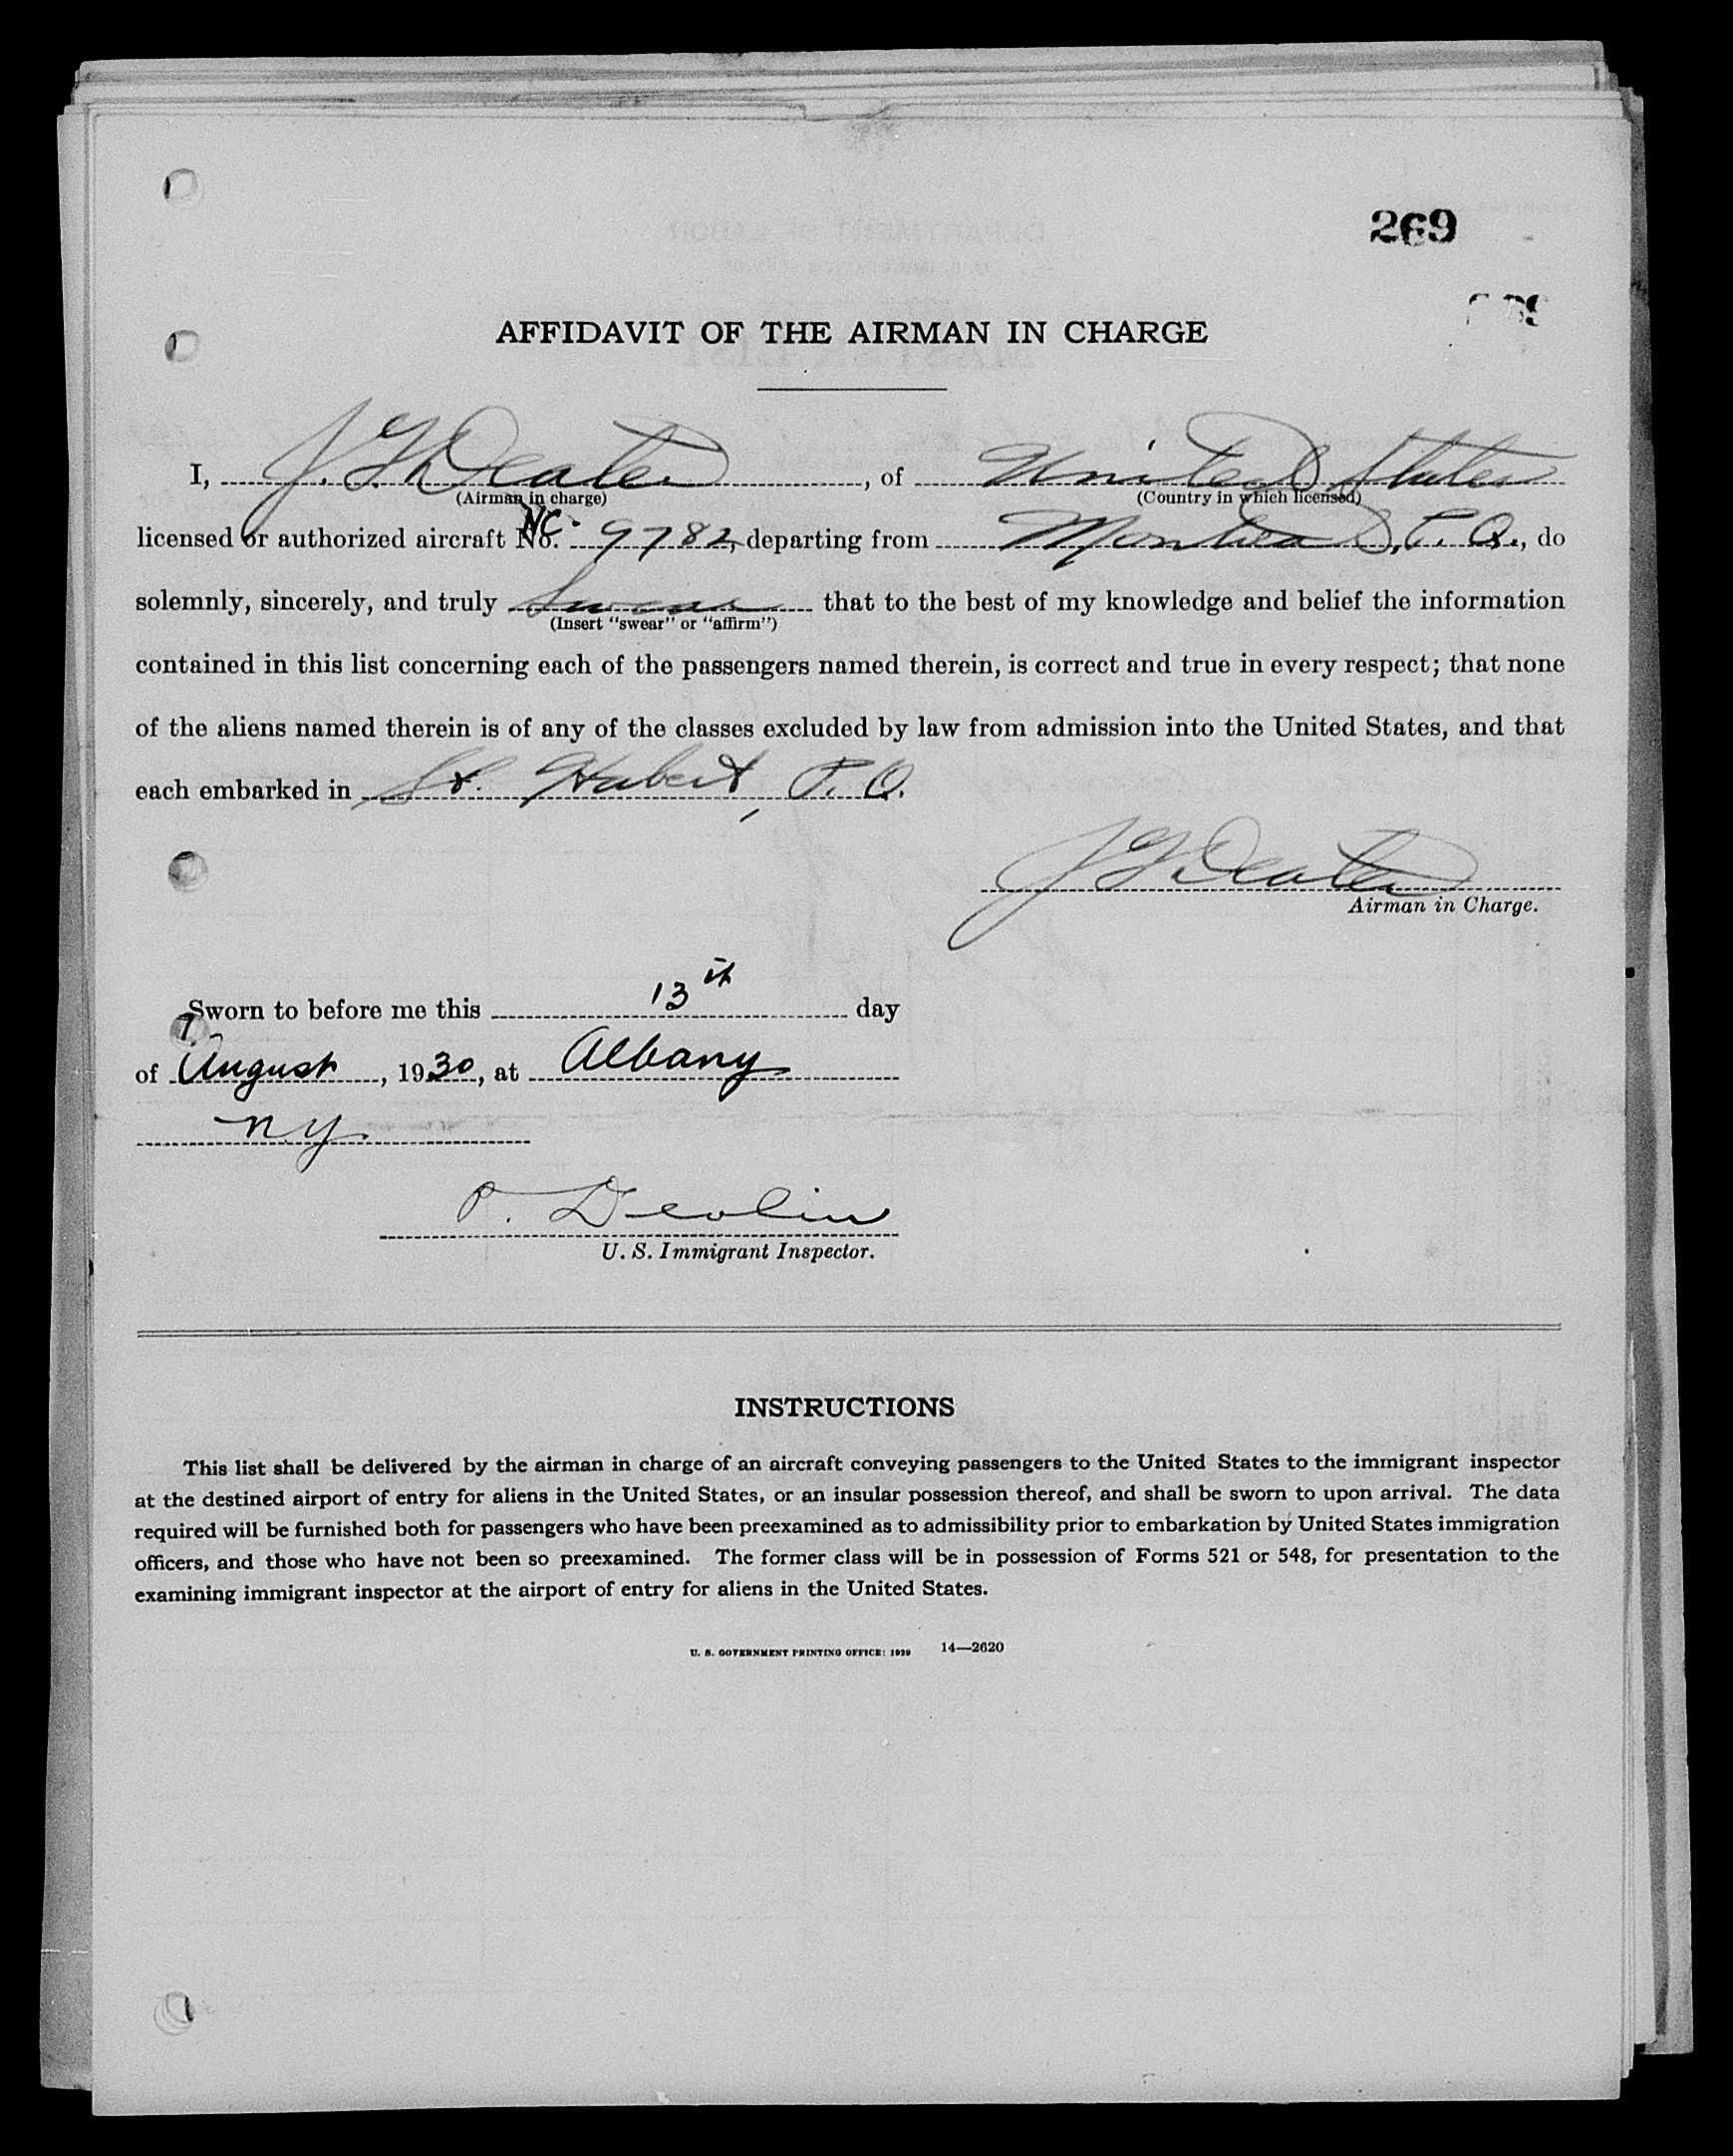 269
AFFIDAVIT OF THE AIRMAN IN CHARGE
I, J. G. Deater, of United States
(Airman in charge) (Country in which licensed)
licensed or authorized aircraft No. NC. 9782, departing from Montreal, P. Q., do
solemnly, sincerely, and truly swear that to the best of my knowledge and belief the information
(Insert "swear" or "affirm")
contained in this list concerning each of the passengers named therein, is correct and true in every respect; that none
of the aliens named therein is of any of the classes excluded by law from admission into the United States, and that
each embarked in St. Hubert, P. Q.
J G Deater
Airman in Charge.
Sworn to before me this 13th day
of August, 1930, at Albany
ny
P. Devlin
U. S. Immigrant Inspector.
INSTRUCTIONS
This list shall be delivered by the airman in charge of an aircraft conveying passengers to the United States to the immigrant inspector
at the destined airport of entry for aliens in the United States, or an insular possession thereof, and shall be sworn to upon arrival. The data
required will be furnished both for passengers who have been preexamined as to admissibility prior to embarkation by United States immigration
officers, and those who have not been so preexamined. The former class will be in possession of Forms 521 or 548, for presentation to the
examining immigrant inspector at the airport of entry for aliens in the United States.
U. S. GOVERNMENT PRINTING OFFICE: 1929 14—2620